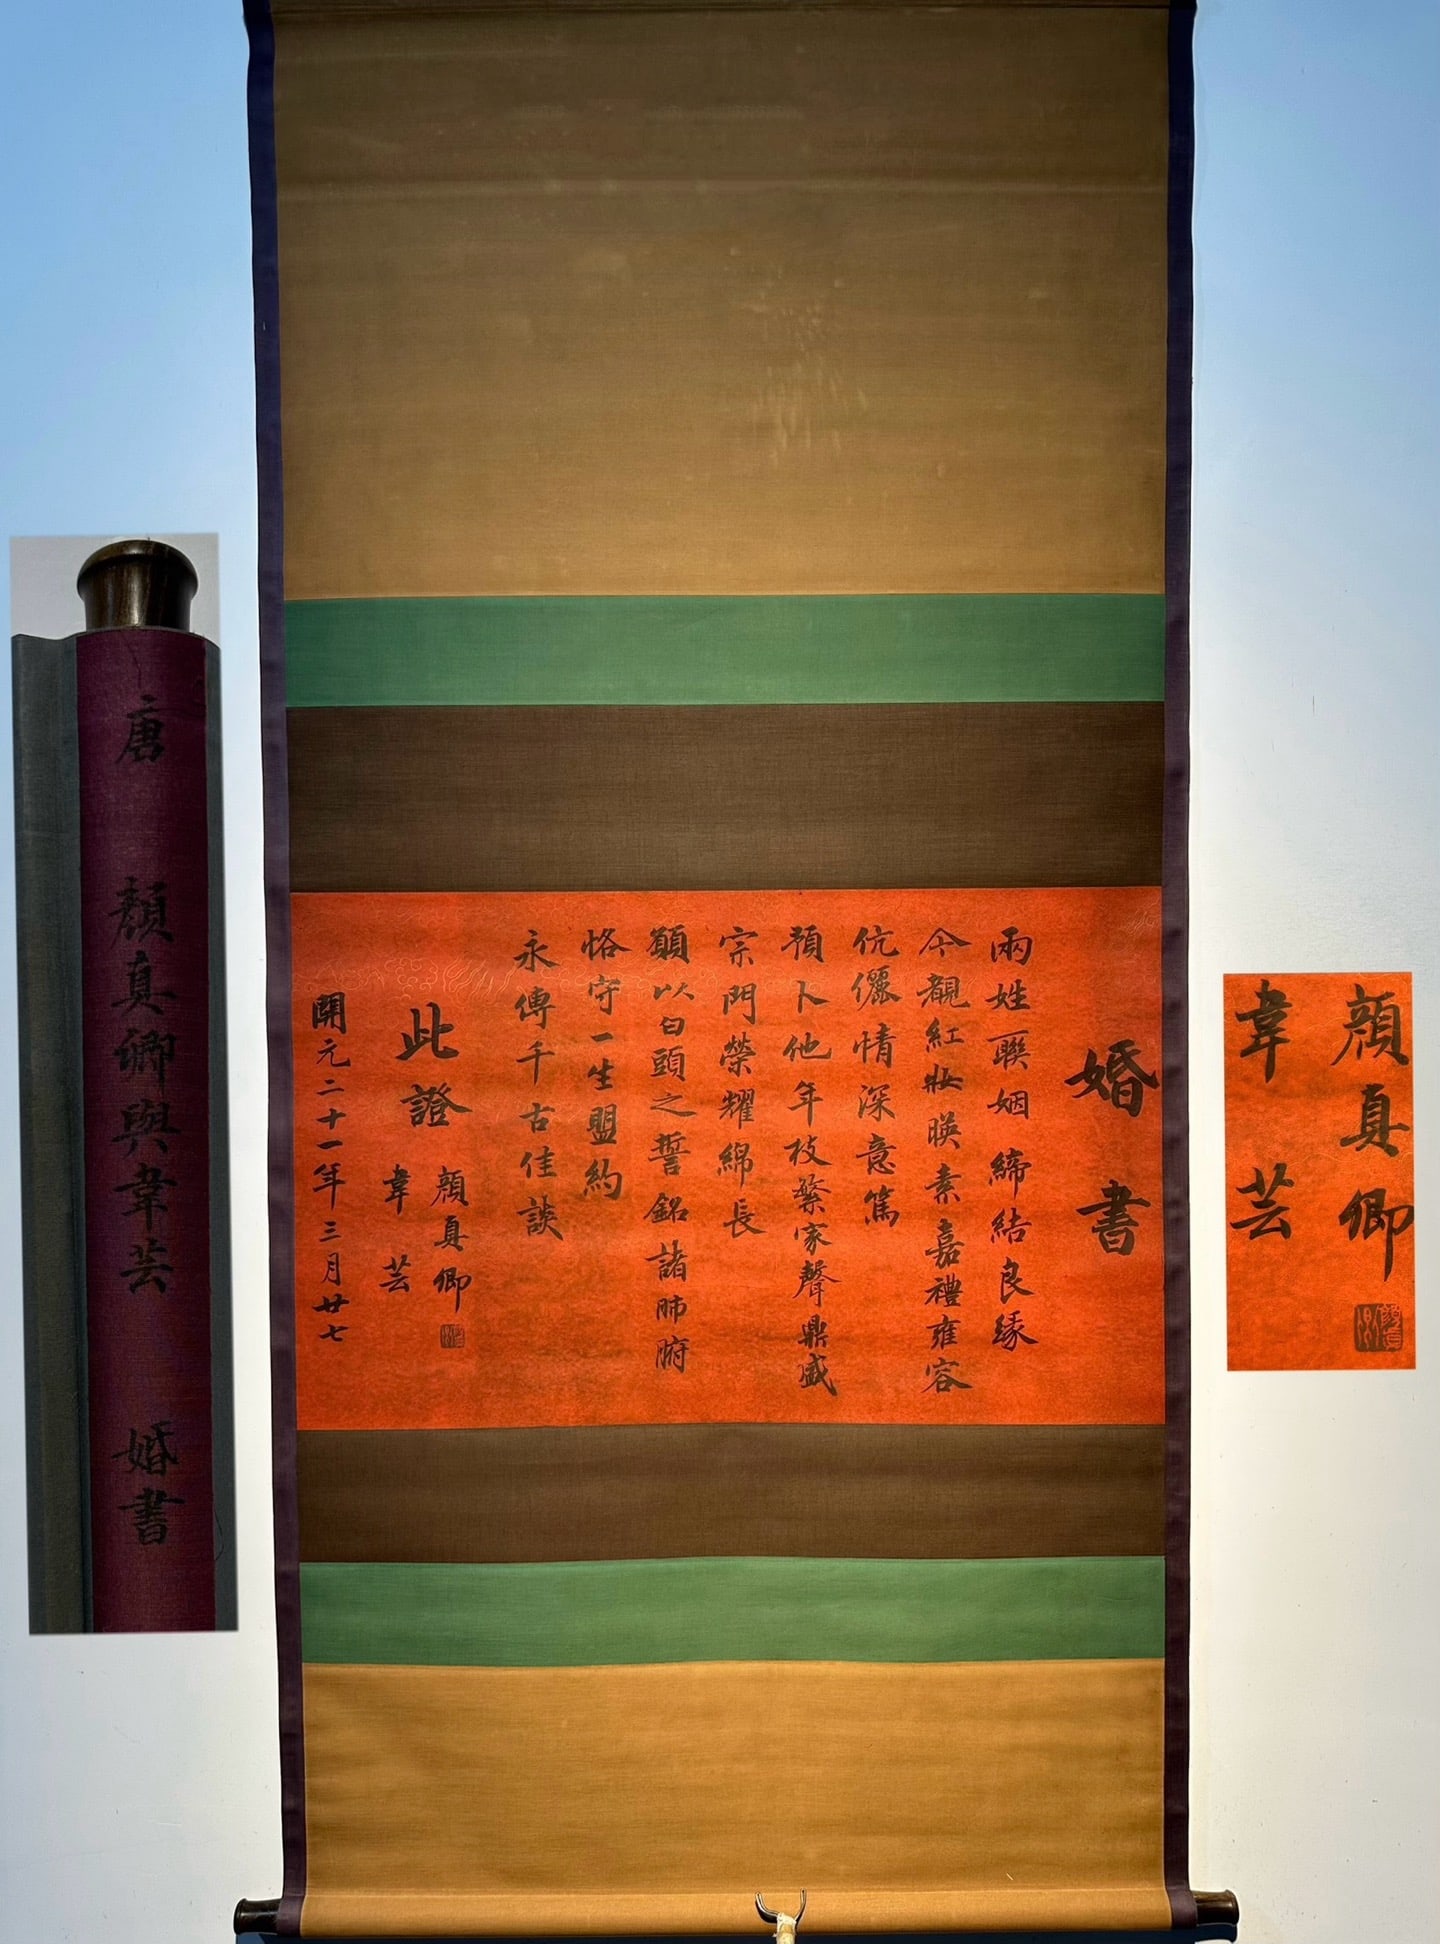 唐 顏真卿與韋芸 婚書
婚書
兩姓聯姻締結良緣
今覩紅妝暎素嘉禮雍容
伉儷情深意篤
預卜他年枝繁家聲鼎盛
宗門榮耀綿長
願以白頭之誓銘諸肺腑
恪守一生盟約
永傳千古佳談
此證
顏真卿
韋芸
開元二十一年三月廿七
顏真卿
韋芸